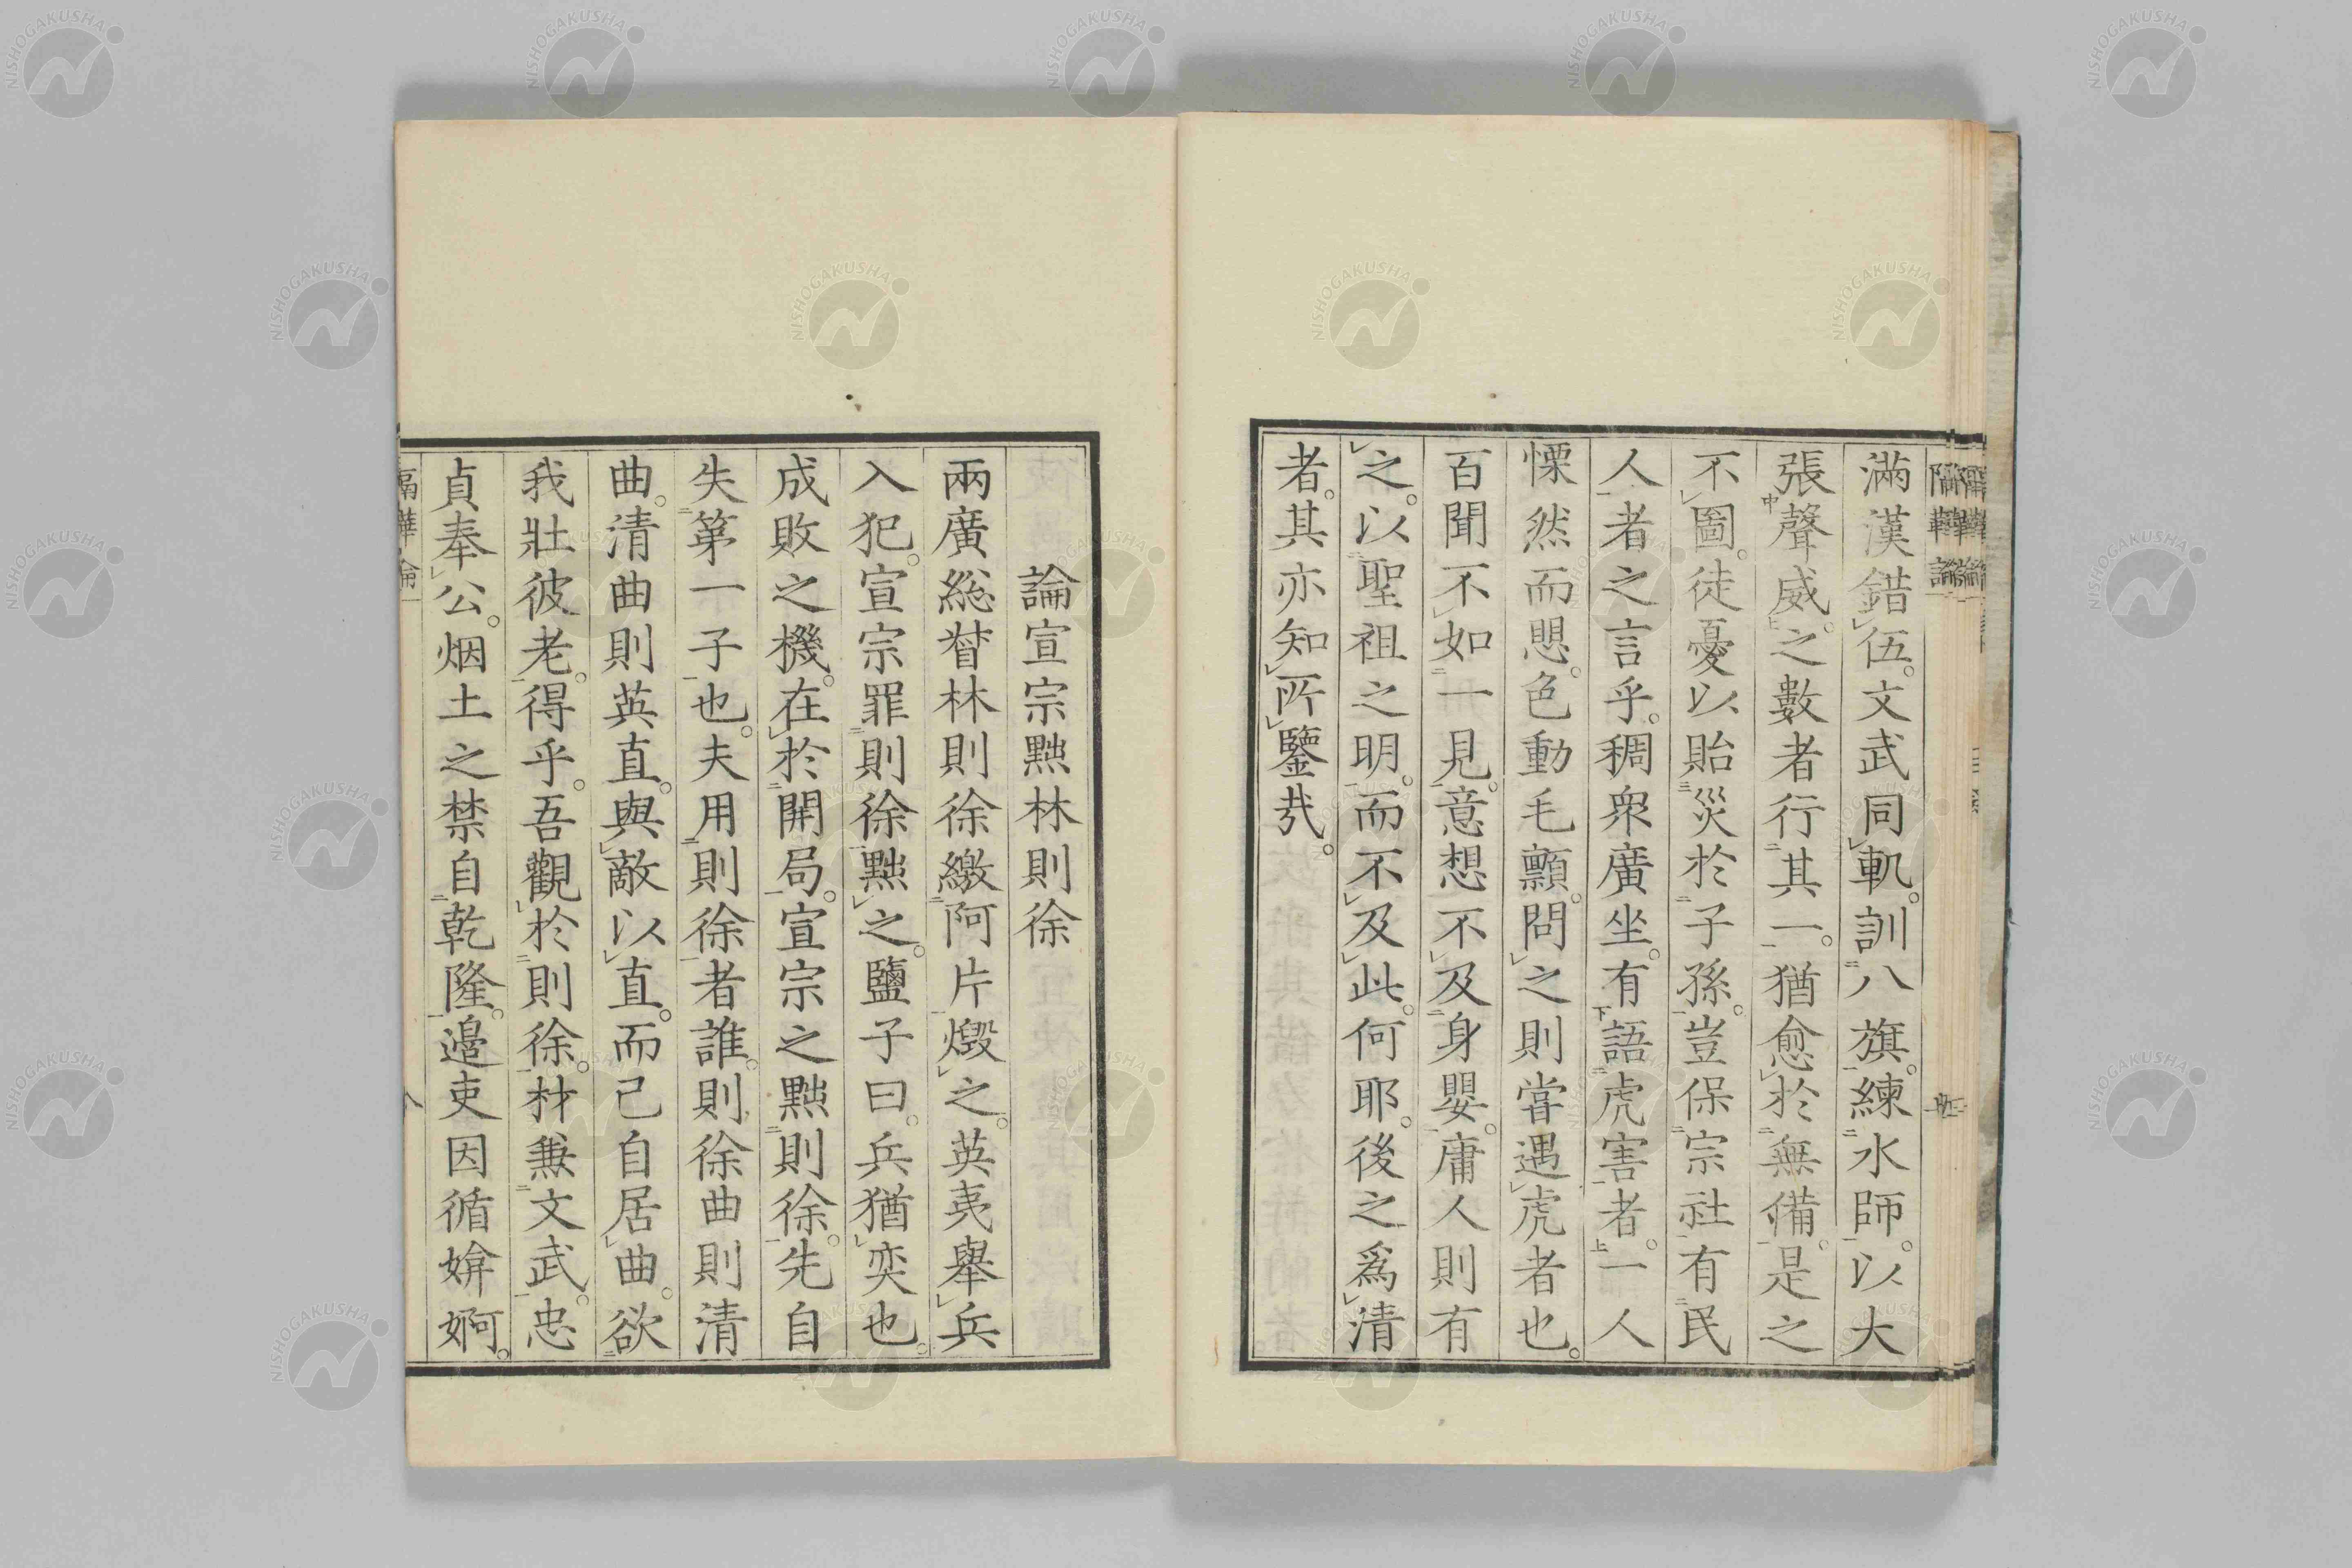 滿漢錯伍。文武同軌。訓八旗。練水師。以大
張聲威。之數者行其一。猶愈於無備。是之
不圖。徒憂以貽災於子孫。豈保宗社有民
人者之言乎。稠衆廣坐。有語虎害者。一人
慄然而愳。色動毛顫。問之則嘗遇虎者也。
百聞不如一見。意想不及身嬰。庸人則有
之。以聖祖之明。而不及此。何耶。後之爲清
者。其亦知所鑒哉。
論宣宗黜林則徐
兩廣総督林則徐繳阿片燬之。英夷舉兵
入犯。宣宗罪則徐黜之。鹽子曰。兵猶奕也。
成敗之機。在於開局。宣宗之黜則徐。先自
失第一子也。夫用則徐者誰。則徐曲則清
曲。清曲則英直。與敵以直。而己自居曲。欲
我壯彼老。得乎。吾觀於則徐。材兼文武。忠
貞奉公。烟土之禁自乾隆。邊吏因循媕婀。
NISHOGAKUSHA